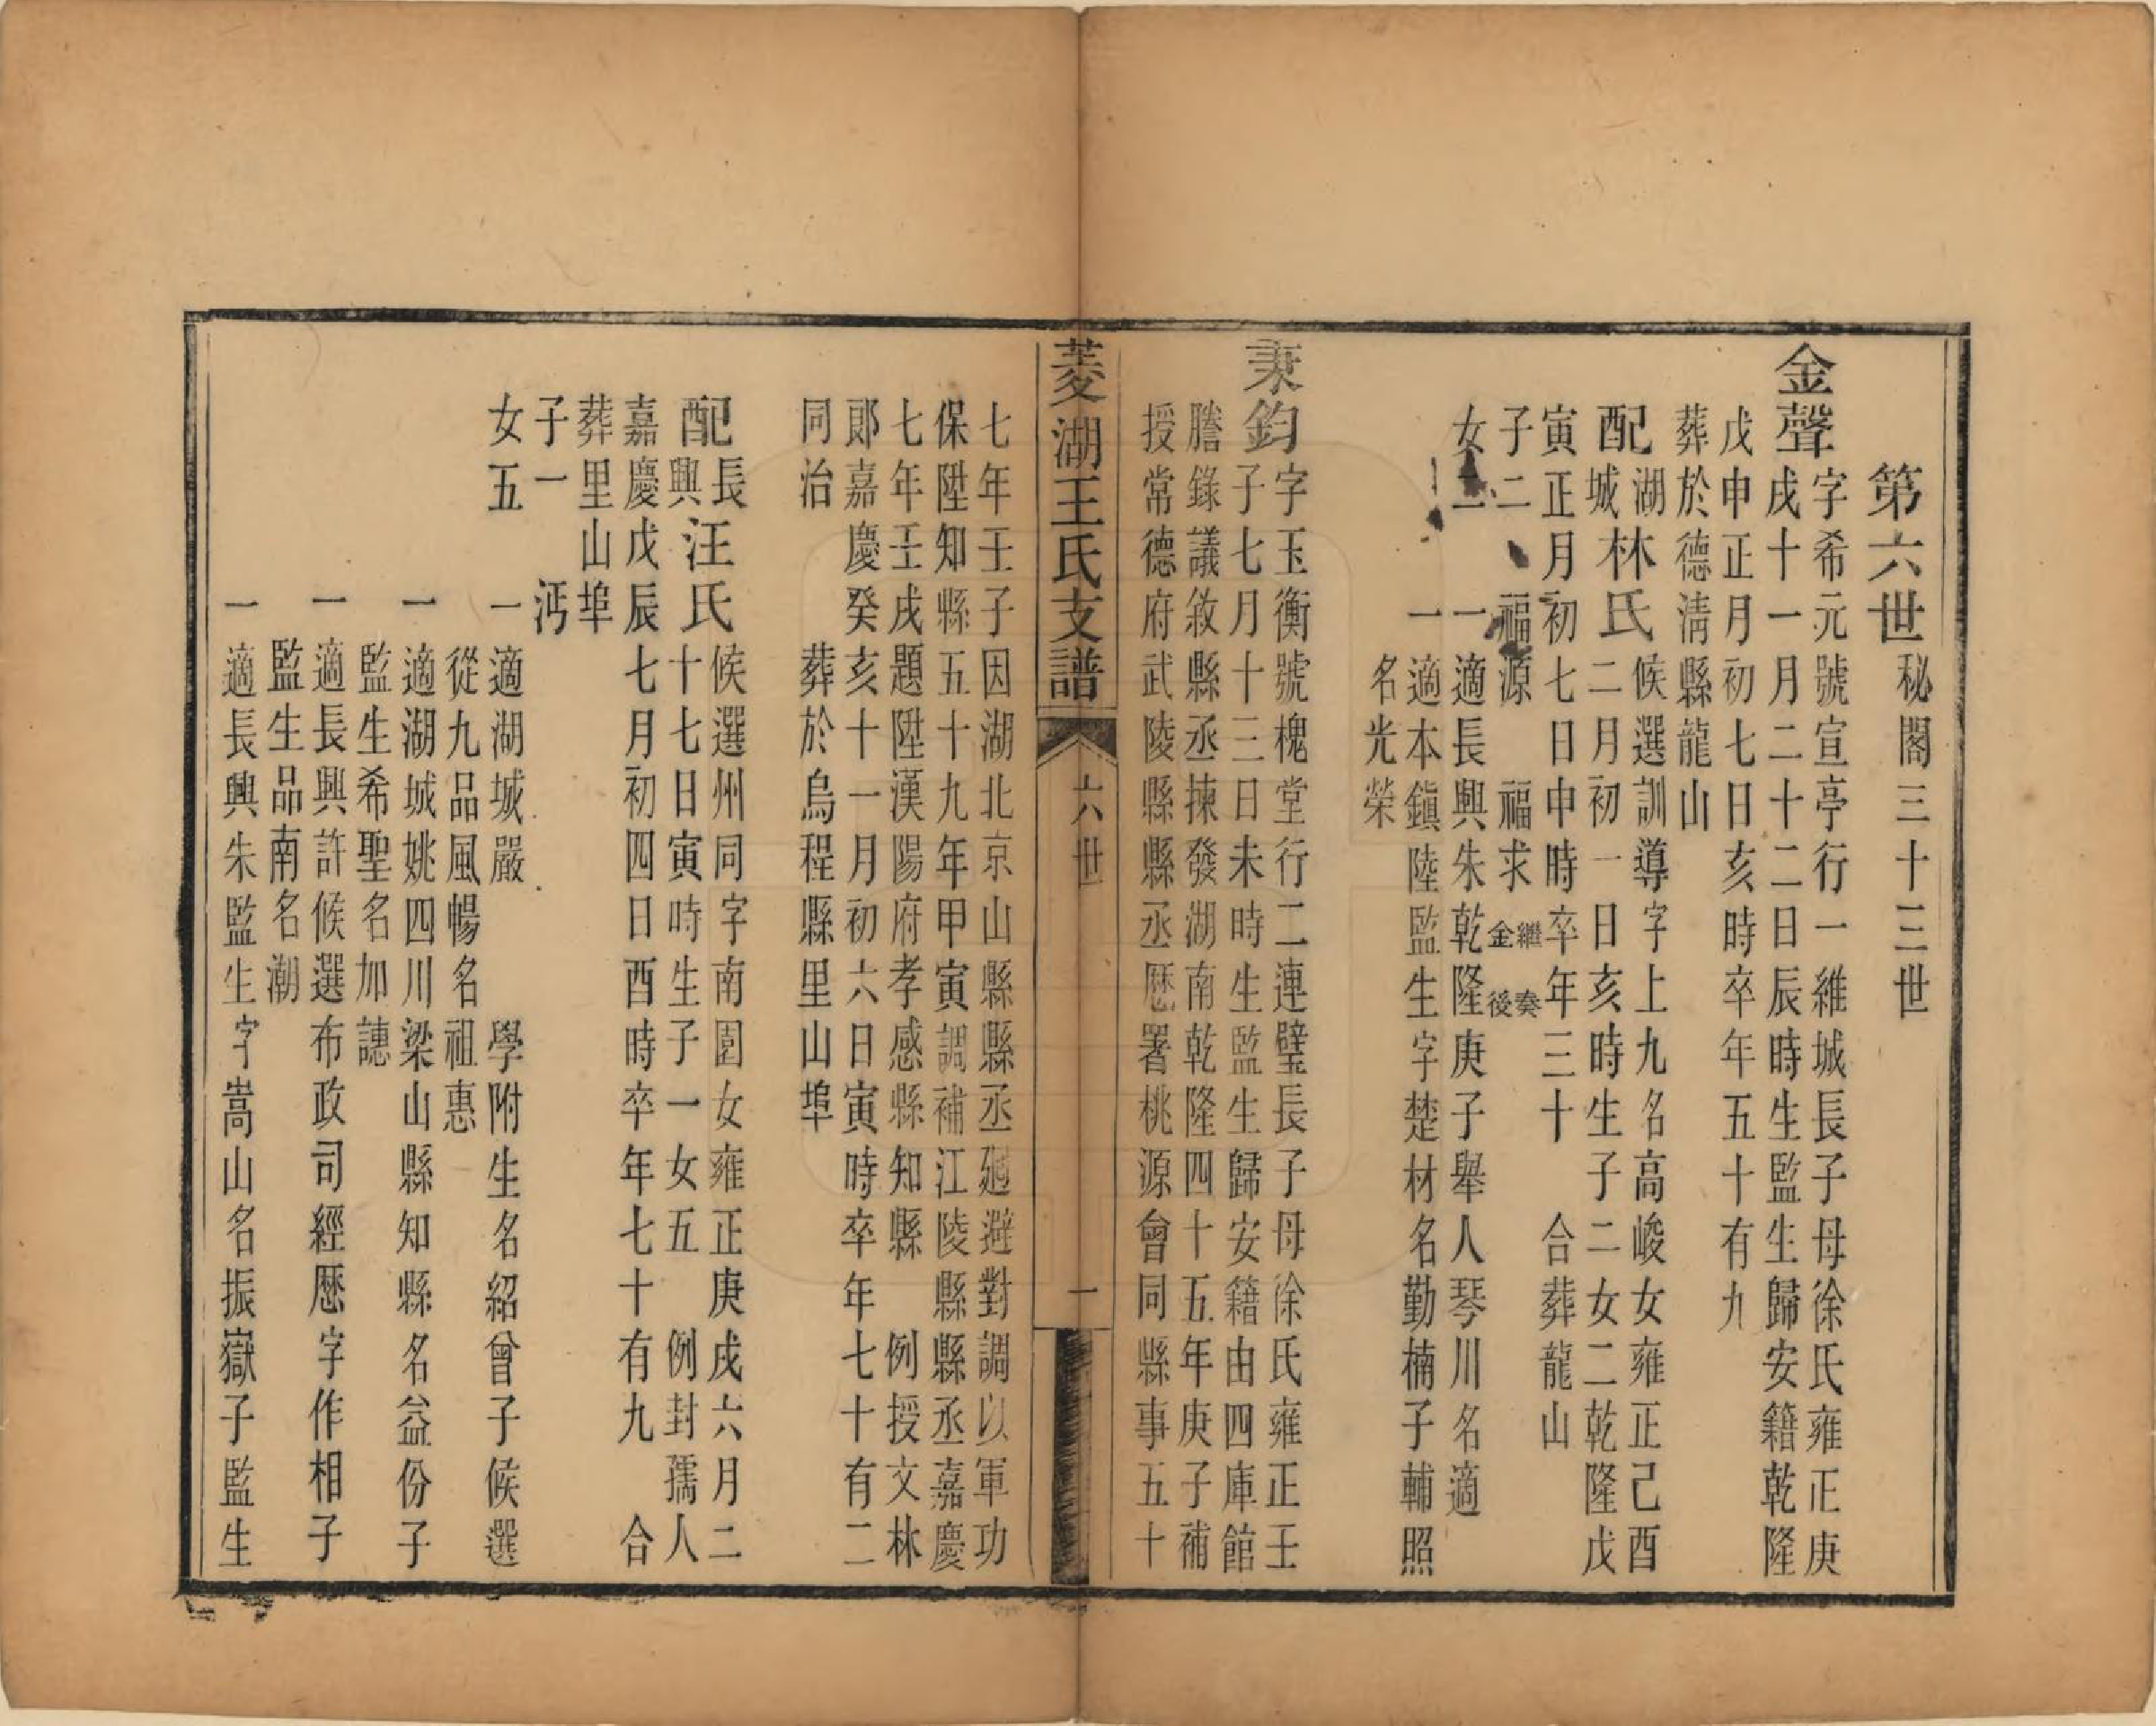 第六世 秘閣三十三世
金聲 字希元號宣亭行一維城長子母徐氏雍正庚
戌十一月二十二日辰時生監生歸安籍乾隆
戊申正月初七日亥時卒年五十有九
葬於德清縣龍山
配湖城林氏 候選訓導字上九名高峻女雍正己酉
二月初一日亥時生子二女二乾隆戊
寅正月初七日申時卒年三十 合葬龍山
子二 福源 福求 繼金奏後
女二 一適長興朱乾隆庚子舉人琴川名適
一適本鎮陸監生字楚材名勤楠子輔照
名光榮
秉鈞 字玉衡號槐堂行二連璧長子母徐氏雍正壬
子七月十三日未時生監生歸安籍由四庫館
謄錄議敘縣丞揀發湖南乾隆四十五年庚子補
授常德府武陵縣縣丞歷署桃源會同縣事五十
菱湖王氏支譜 六世 一
七年壬子因湖北京山縣縣丞迴避對調以軍功
保陞知縣五十九年甲寅調補江陵縣縣丞嘉慶
七年壬戌題陞漢陽府孝感縣知縣 例授文林
郎嘉慶癸亥十一月初六日寅時卒年七十有二
同治 葬於烏程縣里山埠
配長興汪氏 候選州同字南園女雍正庚戌六月二
十七日寅時生子一女五 例封孺人
嘉慶戊辰七月初四日酉時卒年七十有九 合
葬里山埠
子一 沔
女五 一適湖城嚴 學附生名紹曾子候選
從九品風暢名祖惠
一適湖城姚四川梁山縣知縣名益份子
監生希聖名加譓
一適長興許候選布政司經歷字作相子
監生品南名潮
一適長興朱監生字嵩山名振嶽子監生